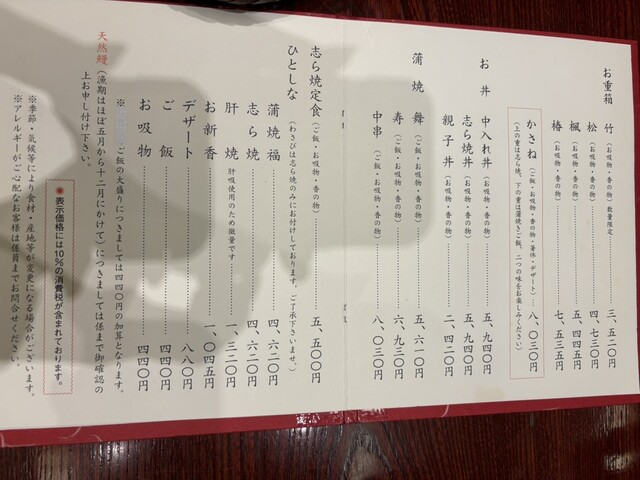 お重箱 竹（お吸物・香の物）数量限定 三、五二〇円
松（お吸物・香の物） 四、七三〇円
楓（お吸物・香の物） 五、四四五円
椿（お吸物・香の物） 七、五三五円
かさね（ご飯・お吸物・香の物・箸休・デザート） 八、〇三〇円
（上の重は志ら焼、下の重は蒲焼きご飯、二つの味をお楽しみください）
お丼 中入れ丼（お吸物・香の物） 五、九四〇円
志ら焼丼（お吸物・香の物） 五、九四〇円
親子丼（お吸物・香の物） 二、四二〇円
蒲焼 舞（ご飯・お吸物・香の物） 五、六一〇円
寿（ご飯・お吸物・香の物） 六、九三〇円
中串（ご飯・お吸物・香の物） 八、〇三〇円
志ら焼定食（ご飯・お吸物・香の物） 五、五〇〇円
（わさびは志ら焼のみにお付けしております。ご了承下さいませ。）
ひとしな
蒲焼福 四、六二〇円
志ら焼 四、六二〇円
肝焼 肝吸使用のため微量です 一、三二〇円
お新香 一、〇四五円
デザート 八八〇円
ご飯 四四〇円
お吸物 四四〇円
※ ご飯の大盛りにつきましては四四〇円の加算となります。
天然鰻（漁期はほぼ五月から十二月にかけて）につきましては係まで御確認の
上お申し付け下さい。
◉表示価格には10％の消費税が含まれております。
※季節・気候等により食材・産地等が変更になる場合がございます。
※アレルギーがご心配なお客様は係員までお問合せください。